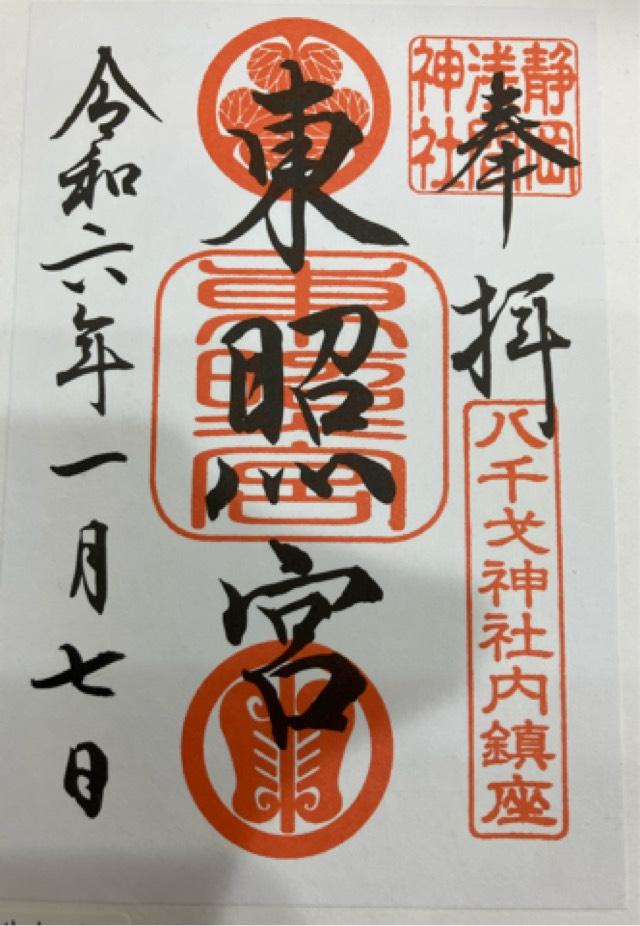 奉拝
静岡
浅間
神社
八千戈神社内鎮座
東照宮
東照宮
令和六年一月七日